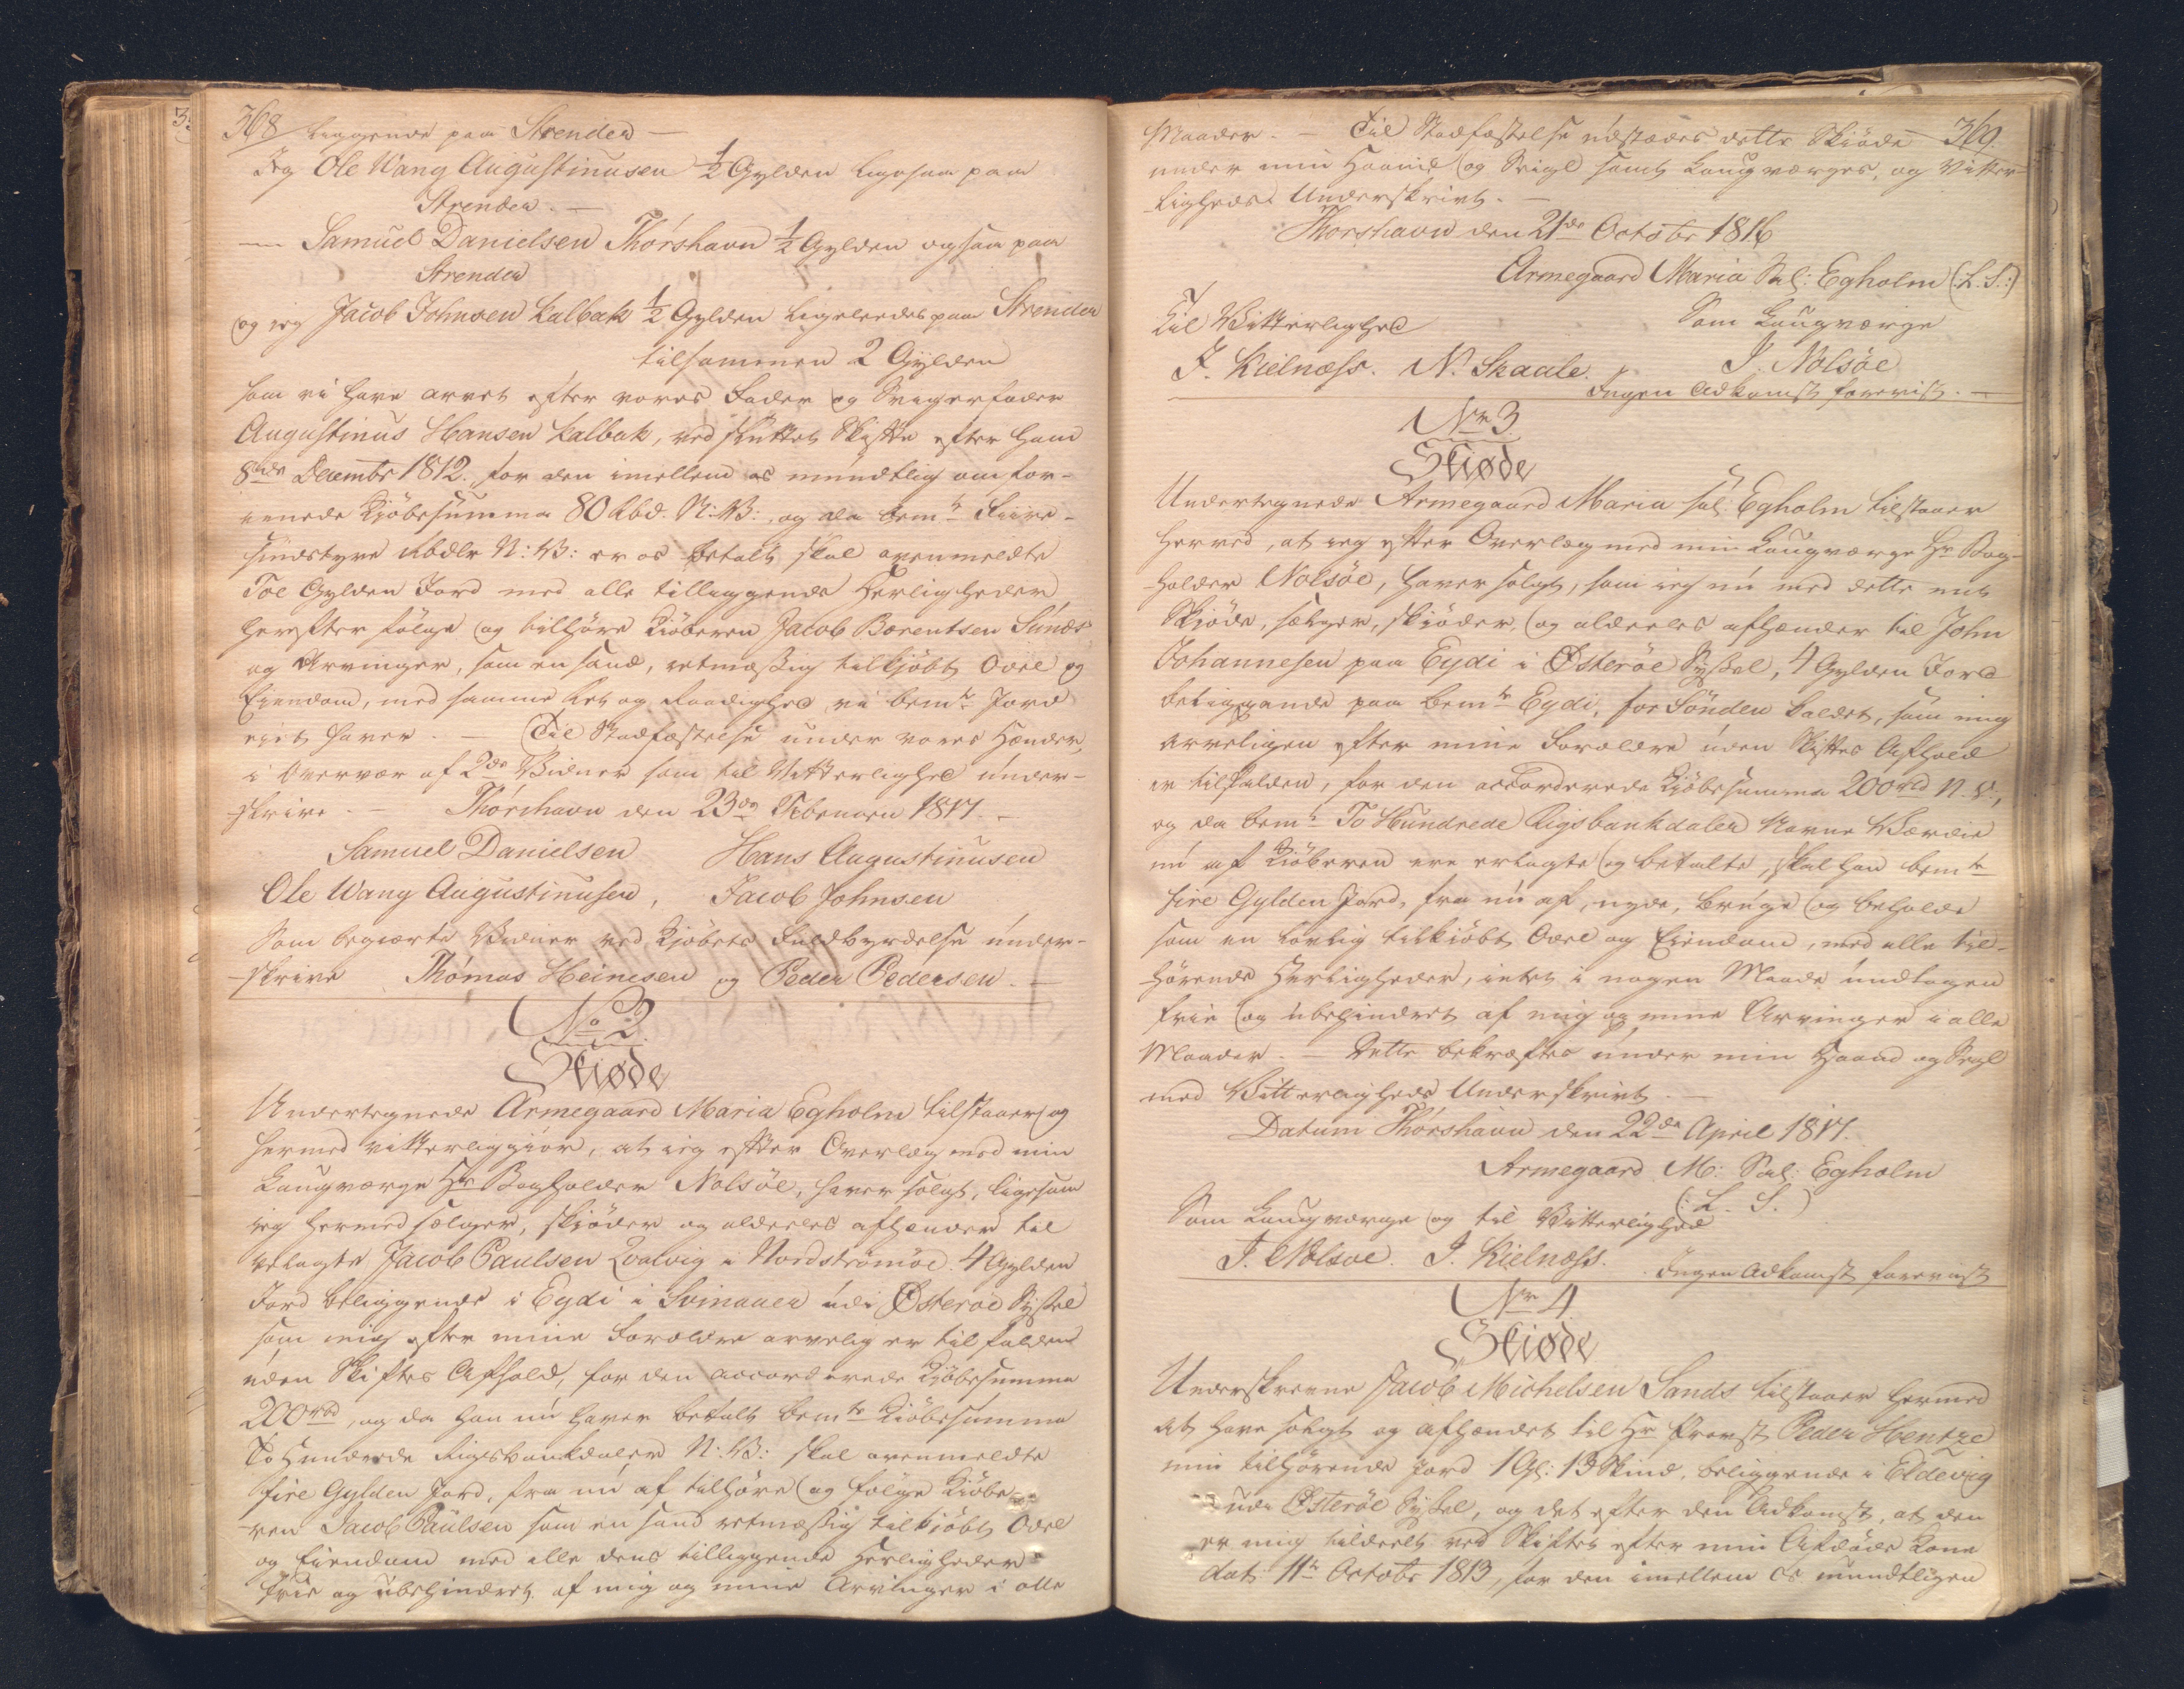 368 liggende paa Strender —
Jeg Ole Wang Augustinusen ½ Gylden ligesaa paa
Strender. —
— Samuel Danielsen Thórshavn ½ Gylden ogsaa paa
Strender
og jeg Jacob Johnsen Kalbak ½ Gylden ligeledes paa Strender
tilsammen 2 Gylden
som vi have arvet efter vores Fader og Svigerfader
Augustinus Hansen Kalbak, ved sluttet Skifte efter ham
8de Decembr 1812., for den imellem os mundtlig omfor-
enede Kjöbesumma 80 Rbd. N: V:, og da bemte Fiire-
sindstyve rbdlr N: V: er os betalt, skal ovenmeldte
Toe Gylden Jord med alle tilliggende Herligheder
herefter fölge og tilhöre Kiöberen Jacob Borentsen Sunds
og Arvinger, som en sand, retmæssig tilkjöbt Odel og
Eiendom, med samme Ret og Raadighed vi bemte Jord
eiet haver. — Til Stadfæstelse under vores Hænder,
i Overvær af 2de Vidner som til Vitterlighed under-
skrive. — Thórshavn den 23de Februari 1817. —
Samuel Danielsen Hans Augustinusen
Ole Wang Augustinusen, Jacob Johnsen
Som begiærte Vidner ved Kjöbets Fuldbyrdelse under-
-skrive Thómas Heinesen og Peder Pedersen. —
No 2.
Skiøde
Undertegnede Armegaard Maria Egholm tilstaaer og
hermed vitterliggiör, at jeg efter Overlæg med min
Laugværge Hr Bogholder Nolsöe, haver solgt, ligesom
jeg hermed sælger, skjöder og aldeeles afhænder til
velagte Jacob Paulsen Qvalvig i Nordströmöe 4 Gylden
Jord beliggende i Eydi i Svinauer udi Österöe Syssel
som mig efter mine Forældre arvelig er tilfalden
uden Skiftes Afhold, for den accorderede Kjöbesumma
200 rbd, og da han nu haver betalt bemte Kiöbesumma
To Hundrede Rigsbankdaler N: V: skal ovenmeldte
fire Gylden Jord, fra nu af tilhöre og fölge Kiöbe-
-ren Jacob Paulsen som en sand retmæssig tilkjöbt Odel
og Eiendom med alle dens tilliggende Herligheder
frie og ubehindret af mig og mine Arvinger i alle
Maader. — Til Stadfæstelse udstædes dette Skiöde 369.
under min Haand og Seigl samt Laugværges, og Vitter-
-ligheds Underskrivt. —
Thorshavn den 21de Octobr 1816
Armegaard Maria Sal: Egholm (: L. S.:)
Til Vitterlighed Som Laugværge
J. Kielnæss. N. Skaale. J. Nolsöe
Ingen Adkomst foreviist. —
Nr 3
Skiøde
Undertegnede Armegaard Maria sal: Egholm tilstaaer
herved, at jeg efter Overlæg med min Laugværge Hr Bog-
-holder Nolsöe, haver solgt, som jeg nu med dette mit
Skjöde, sælger, skjöder, og aldeeles afhænder til John
Johannesen paa Eydi i Österöe Syssel, 4 Gylden Jord
beliggende paa bemte Eydi, for Sönden kaldet, som mig
arveligen efter mine Forældre uden Skiftes Afhold
er tilfalden, for den accorderede Kjöbesumma 200 rbd N. V.,
og da bemte To Hundrede Rigsbankdaler Navne Værdie
nu af Kiöberen ere erlagte og betalte, skal han bemte
fire Gylden Jord, fra nu af, nyde, bruge og beholde
som en lovlig tilkiöbt Odel og Eiendom, med alle til-
-hörende Herligheder, intet i nogen Maade undtagen
frie og ubehindret af mig og mine Arvinger i alle
Maader. — Dette bekræftes under min Haand og Segl
med Vitterligheds Underskrivt. —
Datum Thórshavn den 22de April 1817.
Armegaard M: Sal: Egholm
(: L. S.)
Som Laugværge og til Vitterlighed
J. Nolsoe. J. Kielnæss. Ingen Adkomst foreviist
Nr 4
Skiøde
Underskrevne Jacob Michelsen Sands tilstaaer hermed
at have solgt og afhændet til Hr Provst Peder Hentze
min tilhörende Jord 1 Gl: 13 Skind, beliggende i Eldevig
udi Österöe Syssel, og det efter den Adkomst, at den
er mig tildeelt ved Skiftet efter min Afdöde Kone
dat: 11te Octobr 1813, for den imellem os mundtligen